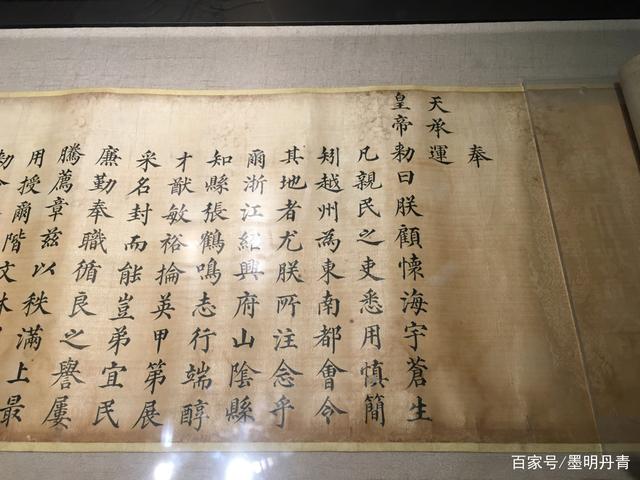 奉
天承運
皇帝勑曰朕顧懷海宇蒼生
凡親民之吏悉用慎簡
矧越州為東南都會今
其地者尤朕所注念乎
爾浙江紹興府山陰縣
知縣張鶴鳴志行端醇
才猷敏裕掄英甲第展
采名封而能豈弟宜民
廉勤奉職循良之譽屢
騰薦章茲以秩滿上最
用授爾階文林
勑命
百家号/墨明丹青